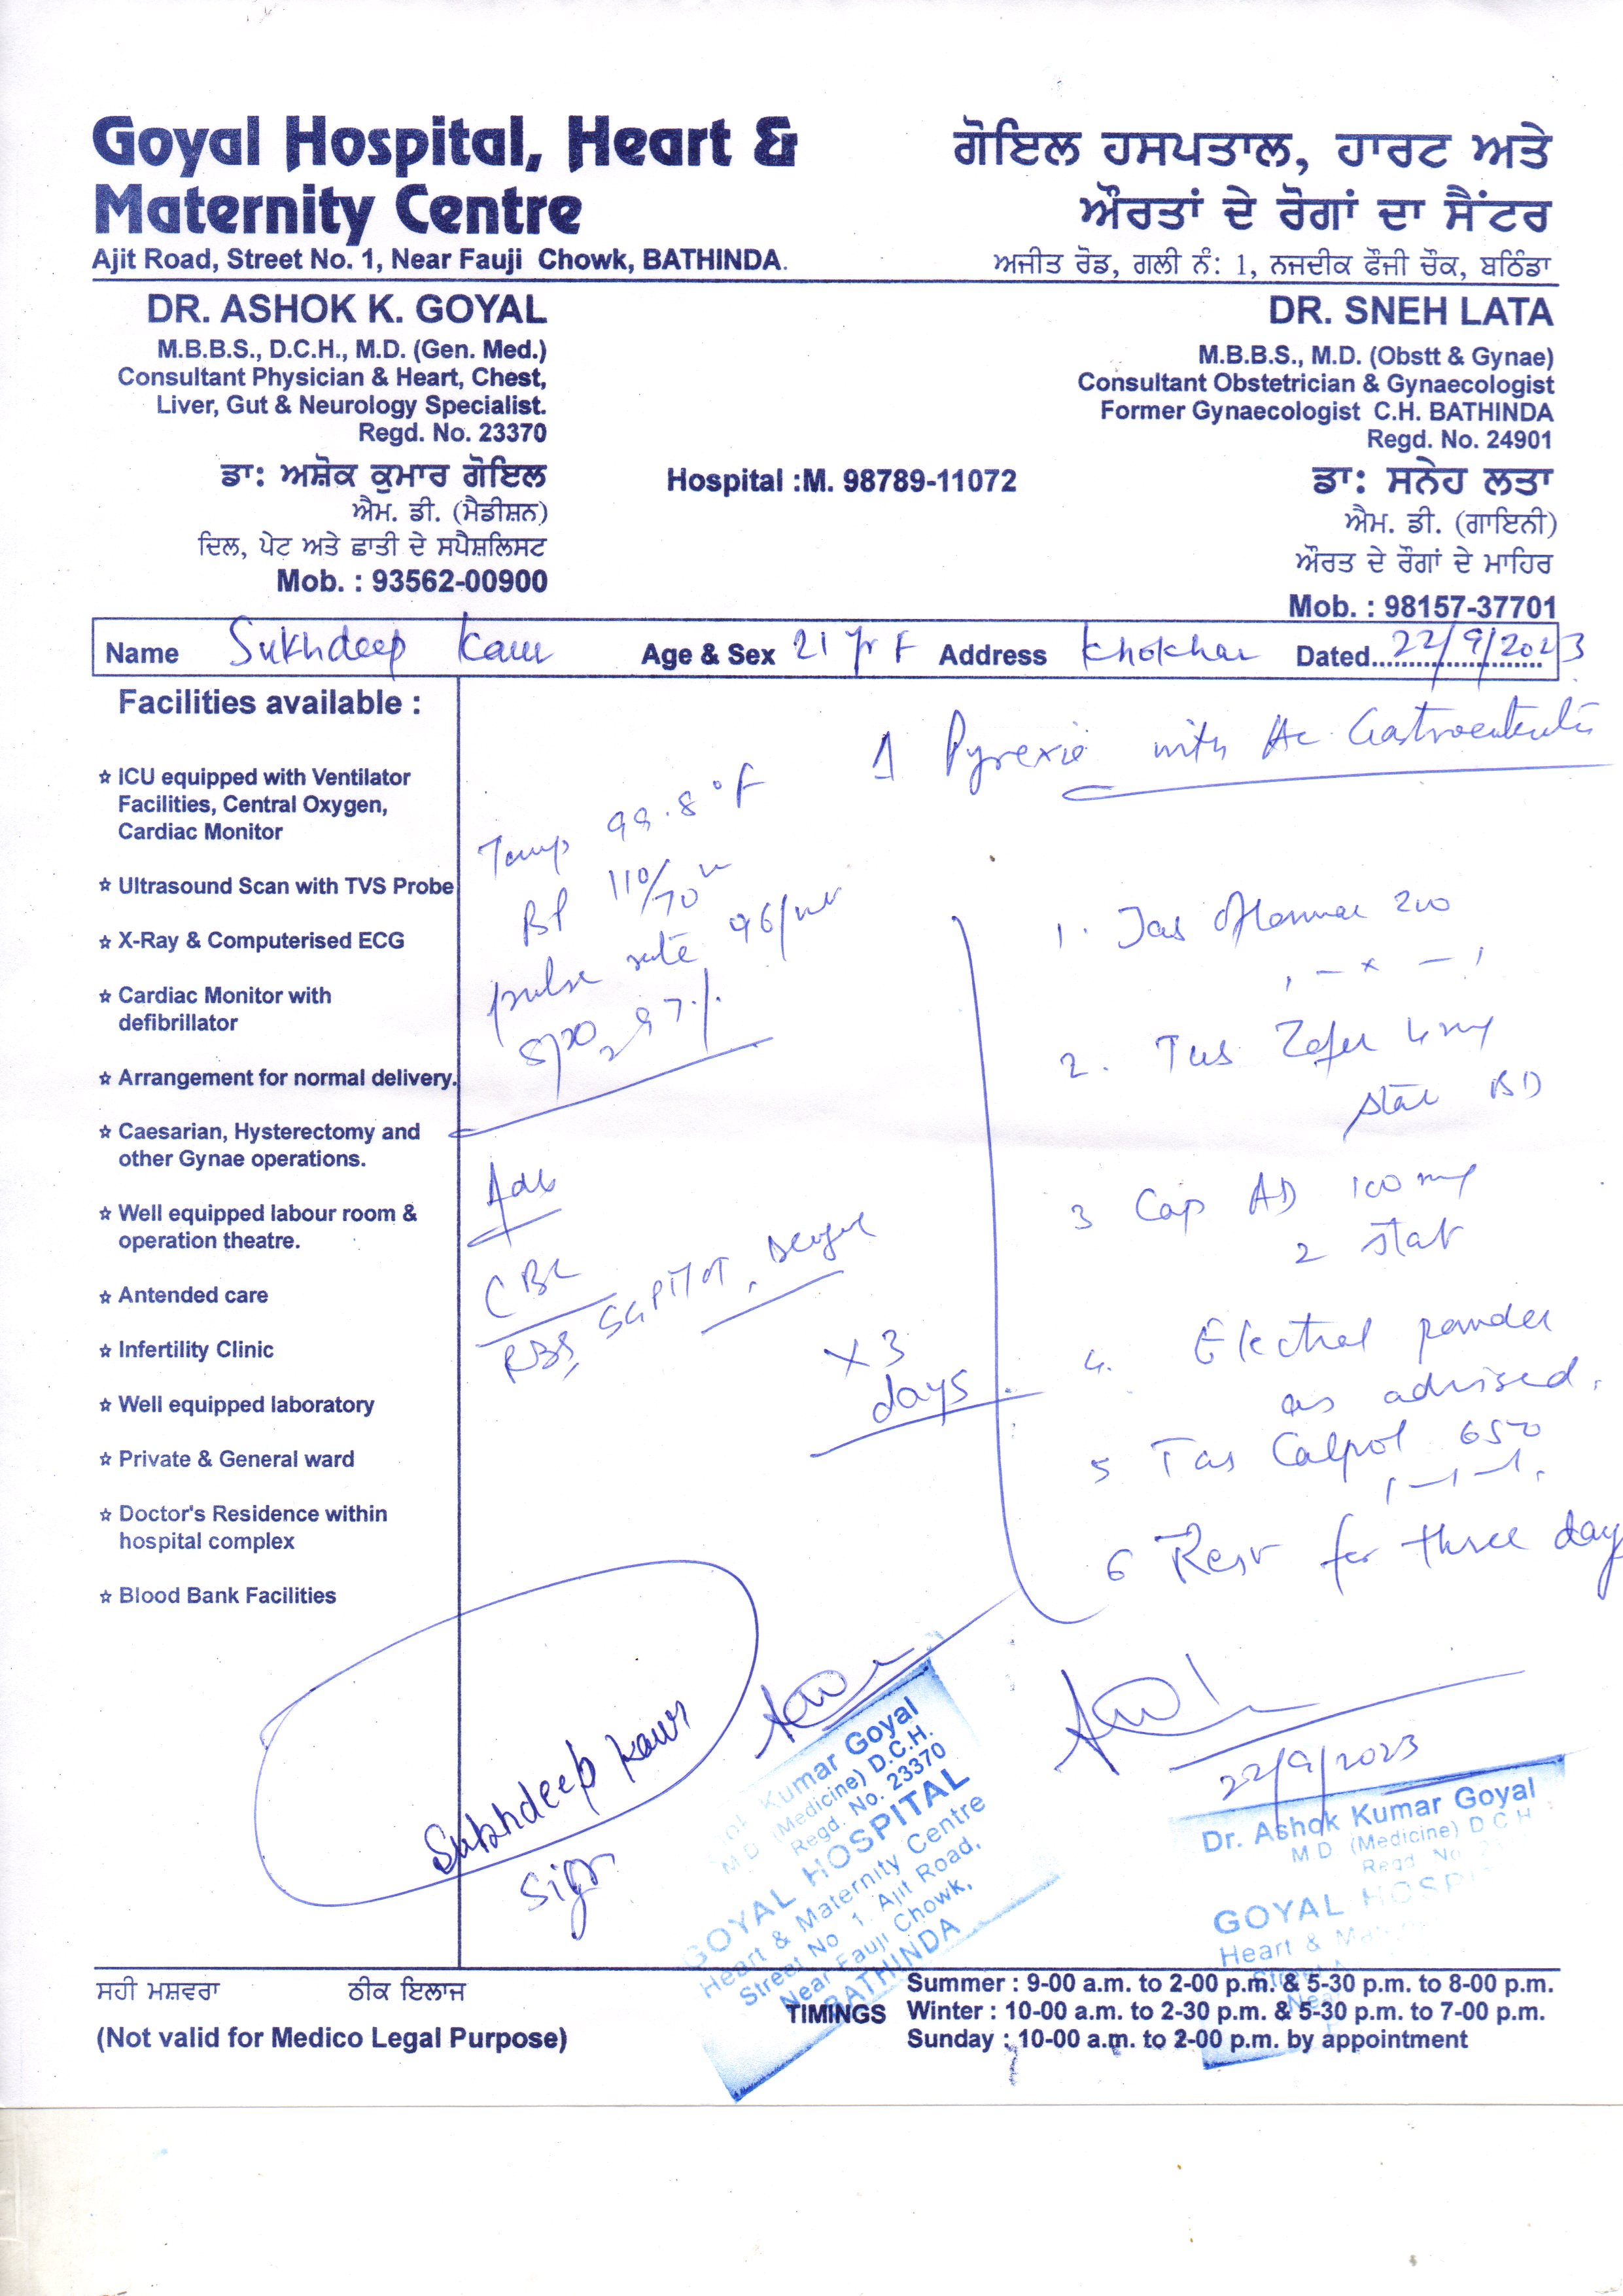 Goyal Hospital, Heart &
Maternity Centre
Ajit Road, Street No. 1, Near Fauji Chowk, BATHINDA.
ਗੋਇਲ ਹਸਪਤਾਲ, ਹਾਰਟ ਅਤੇ
ਔਰਤਾਂ ਦੇ ਰੋਗਾਂ ਦਾ ਸੈਂਟਰ
ਅਜੀਤ ਰੋਡ, ਗਲੀ ਨੰ: 1, ਨਜਦੀਕ ਫੌਜੀ ਚੌਕ, ਬਠਿੰਡਾ
DR. ASHOK K. GOYAL
M.B.B.S., D.C.H., M.D. (Gen. Med.)
Consultant Physician & Heart, Chest,
Liver, Gut & Neurology Specialist.
Regd. No. 23370
ਡਾ: ਅਸ਼ੋਕ ਕੁਮਾਰ ਗੋਇਲ
ਐਮ. ਡੀ. (ਮੈਡੀਸ਼ਨ)
ਦਿਲ, ਪੇਟ ਅਤੇ ਛਾਤੀ ਦੇ ਸਪੈਸ਼ਲਿਸਟ
Mob. : 93562-00900
Hospital :M. 98789-11072
DR. SNEH LATA
M.B.B.S., M.D. (Obstt & Gynae)
Consultant Obstetrician & Gynaecologist
Former Gynaecologist C.H. BATHINDA
Regd. No. 24901
ਡਾ: ਸਨੇਹ ਲਤਾ
ਐਮ. ਡੀ. (ਗਾਇਨੀ)
ਔਰਤ ਦੇ ਰੋਗਾਂ ਦੇ ਮਾਹਿਰ
Mob. : 98157-37701
Name Sukhdeep Kaur Age & Sex 21 yr F Address Khokhar Dated 22/9/2023
Facilities available :
☆ ICU equipped with Ventilator
Facilities, Central Oxygen,
Cardiac Monitor
☆ Ultrasound Scan with TVS Probe
☆ X-Ray & Computerised ECG
☆ Cardiac Monitor with
defibrillator
☆ Arrangement for normal delivery.
☆ Caesarian, Hysterectomy and
other Gynae operations.
☆ Well equipped labour room &
operation theatre.
☆ Antended care
☆ Infertility Clinic
☆ Well equipped laboratory
☆ Private & General ward
☆ Doctor's Residence within
hospital complex
☆ Blood Bank Facilities
Pyrexie with Ac Gastroenteritis
Temp 99.8°F
BP 110/70
pulse rate 96/mt
SPO2 97%
Adv
CBC
RBS, SGPT/OT, Dengue
x3
days
1. Tab 200
1 - x - 1
2. Tab Zofer 4mg
stat BD
3 Cap AD 100 mg
2 stat
4. Electral powder
as advised.
5 Tab Calpol 650
1-1-1.
6 Rest for three days
Sukhdeep Kaur
Sign
Kumar Goyal
M D (Medicine) D.C.H.
Regd. No. 23370
GOYAL HOSPITAL
Heart & Maternity Centre
Street No 1. Ajit Road,
Near Fauji Chowk,
BATHINDA
22/9/2023
Dr. Ashok Kumar Goyal
M D (Medicine) D C H
Regd No
GOYAL HOSPI
Heart & Ma
ਸਹੀ ਮਸ਼ਵਰਾ ਠੀਕ ਇਲਾਜ
(Not valid for Medico Legal Purpose)
TIMINGS
Summer : 9-00 a.m. to 2-00 p.m. & 5-30 p.m. to 8-00 p.m.
Winter : 10-00 a.m. to 2-30 p.m. & 5-30 p.m. to 7-00 p.m.
Sunday : 10-00 a.m. to 2-00 p.m. by appointment